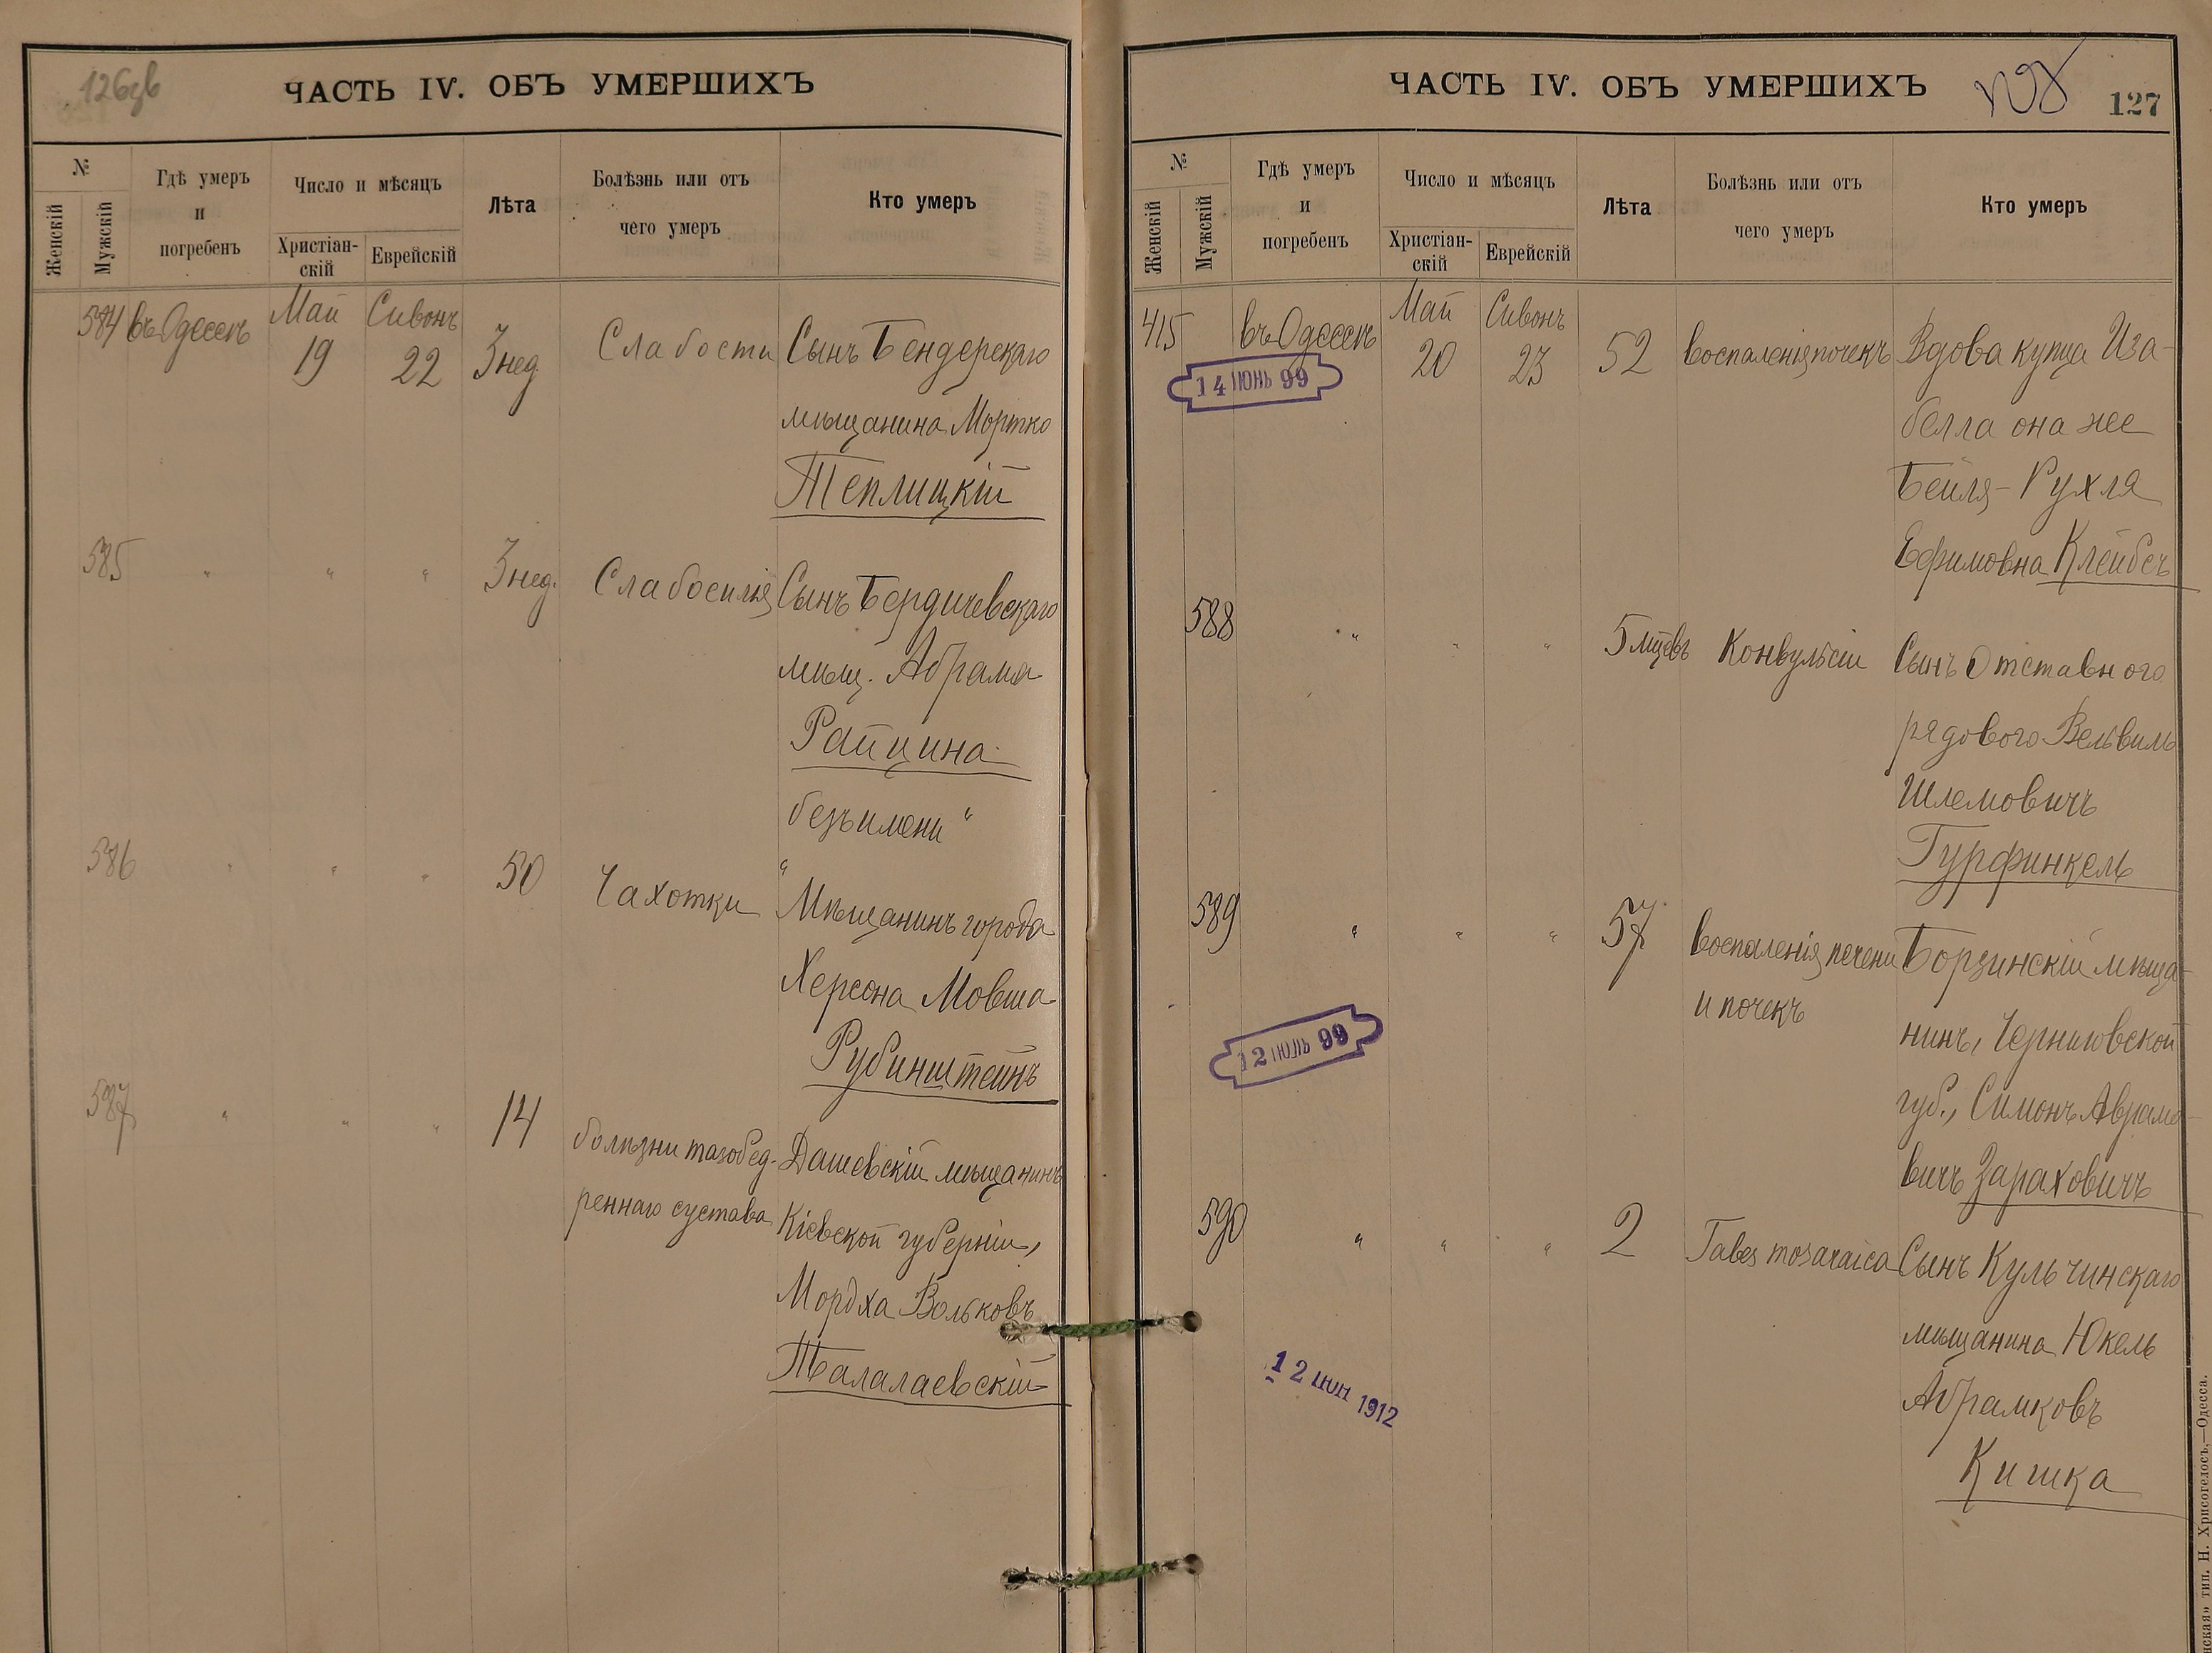 126об
ЧАСТЬ IV. ОБЪ УМЕРШИХЪ
№
Женскій
Мужскій
Гдѣ умеръ
и
погребенъ
Число и мѣсяцъ
Христіан-
скій
Еврейскій
Лѣта
Болѣзнь или отъ
чего умеръ
Кто умеръ
584 въ Одессѣ Май 19 Сивонъ 22 3 нед. Слабости Сынъ Бендерскаго
мѣщанина Мортко
Теплицкій
585 " " " 3 нед. Слабосилія Сынъ Бердичевскаго
мѣщ. Абрама
Райцина
безъ имени "
586 " " " 50 Чахотки "Мѣщанинъ города
Херсона Мовша
Рубинштейнъ
587 " " " 14 болѣзни тазобед- Дашевскій мѣщанинъ
реннаго сустава Кіевской губерніи,
Мордха Вольковъ
Талалаевскій
ЧАСТЬ IV. ОБЪ УМЕРШИХЪ
127
№
Женскій
Мужскій
Гдѣ умеръ
и
погребенъ
Число и мѣсяцъ
Христіан-
скій
Еврейскій
Лѣта
Болѣзнь или отъ
чего умеръ
Кто умеръ
415 въ Одессѣ Май 20 Сивонъ 23 52 воспаленія почекъ Вдова купца Иза-
14 ІЮНЬ 99
белла она же
Бейля-Рухля
Ефимовна Клейберъ
588 " " " 5 мцевъ Конвульсіи Сынъ Отставного
рядового Вельвиль
Шлемовичъ
Гурфинкель
589 " " " 57 воспаленія печени Борзинскій мѣща-
и почекъ нинъ, Черниговской
12 ІЮЛЬ 99
губ., Симонъ Авраме-
вичъ Зараховичъ
590 " " " 2 Tabes mosaraica Сынъ Кульчинскаго
мѣщанина Юкель
12 ИЮН 1912
Абрамковъ
Кишка
тип. Н. Хрисогелосъ,—Одесса.